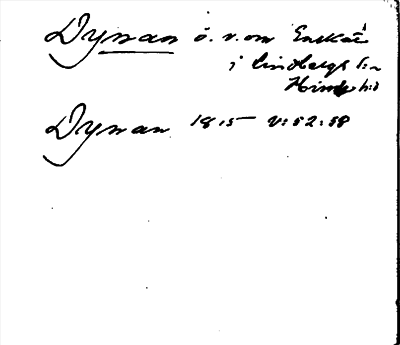 Dynan ö. v. om Enekåi
i Lindbergs s:n
Himle h:d
Dynan 1815 V:52:58